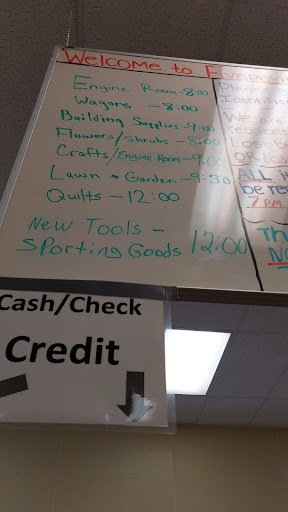 Welcome to Fivepoin
Engine Room-8:00
Wagons - 8:00
Building Supplies-9:00
Flowers/Shrubs - 8:00
Crafts/Engine Room-9:00
Lawn & Garden-9:30
Quilts - 12:00
New Tools -
Sporting Goods 12:00
Please
Identific
We
ALL
be re
7 P.M.
Th
NO
Cash/Check
Credit